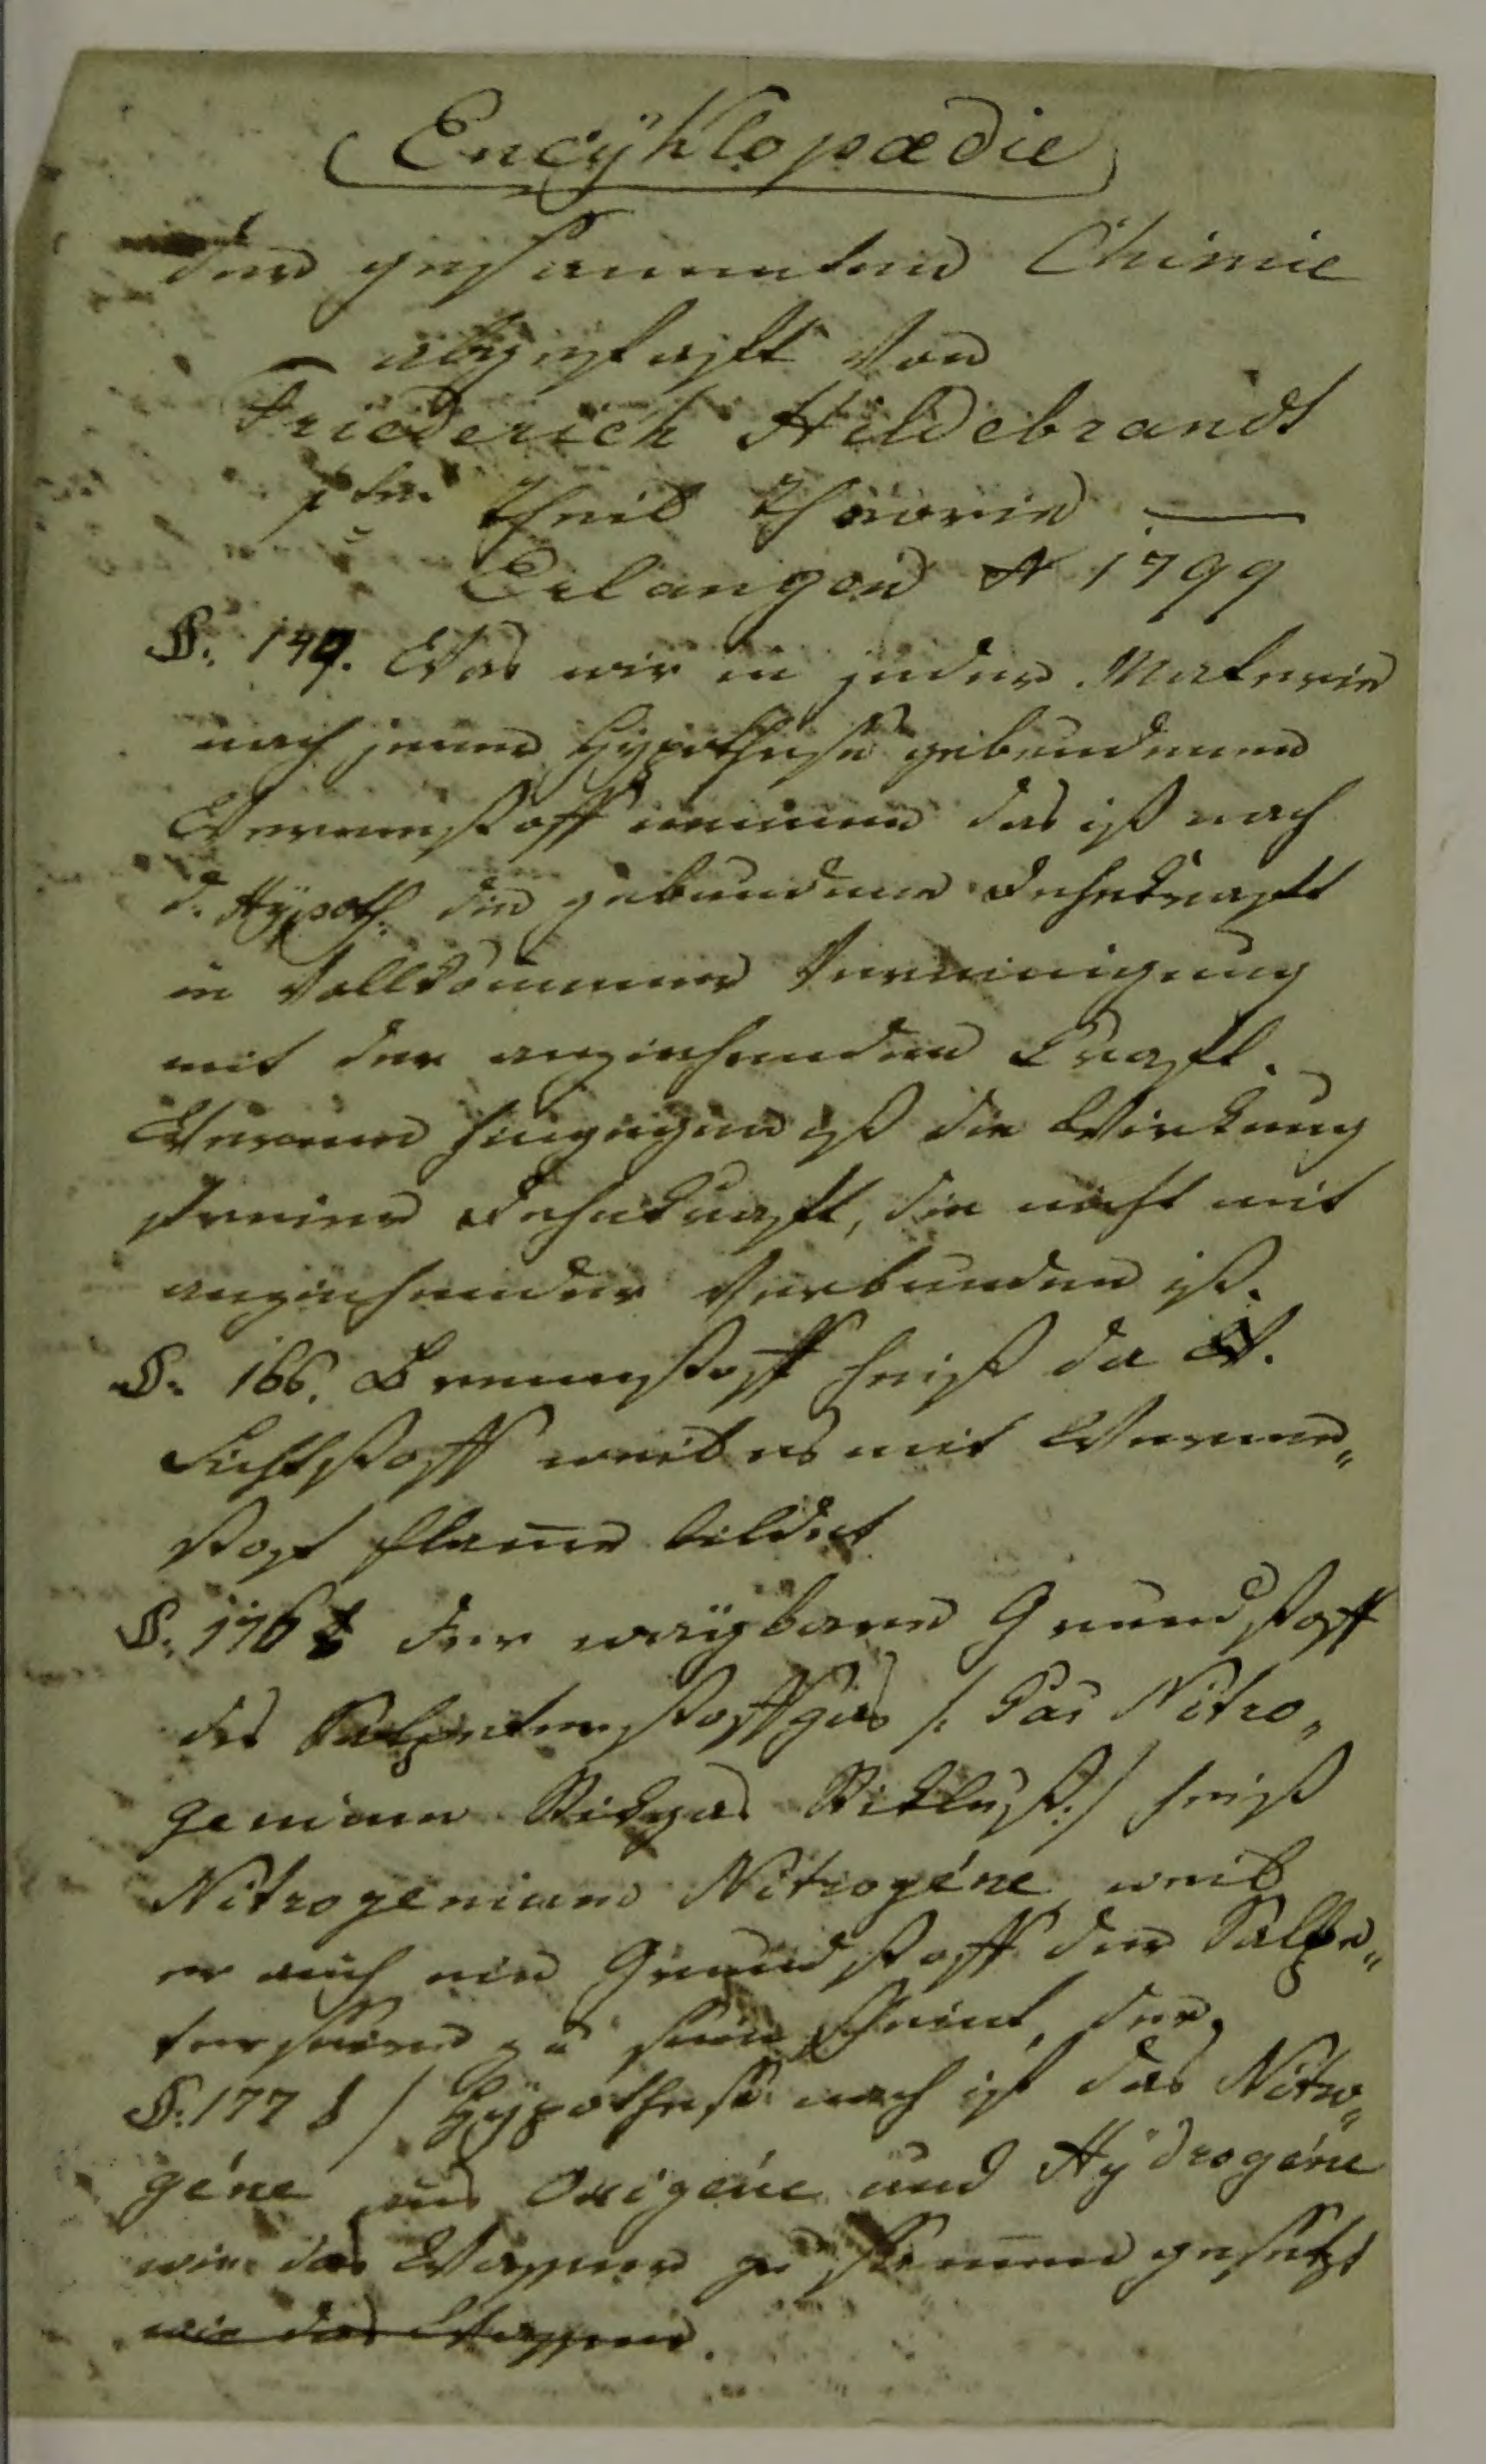 Encÿklopædie
der gesammten Chimie
abgefasst von
Friederich Hildebrandt
1ter Theil Theorie —
Erlangen A 1799
§. 149. Was wir in jeder Materie
nach jener Hypothese gebundenen
Wermestoff nennen das ist nach
d. Hÿpoth. die gebundene Dehnkraft
in vollkommner Vereinigung
mit der anziehenden Kraft.
Werme hingegen ist die Wirkung
freier Dehnkraft, die nicht mit
anziehender Verbunden ist.
§. 166. Brennstoff heist da
Lichtstoff weil es mit Werme„
stof flame bildet
§. 176 der wägbare Grundstoff
des Salpeterstoffgas /. Gas Nitro„
genium Stickgas Stickluft./ heist
Nitrogenium Nitrogéne weil
er auch ein Grundstoff der Salpe„
tersäure zu sein scheint, der
§. 177 / Hÿpothese nach ist das Nitro„
géne aus Oxigéne und Hÿdrogéne
wie das Wasser zusamen gesetzt
wie das Wasser.